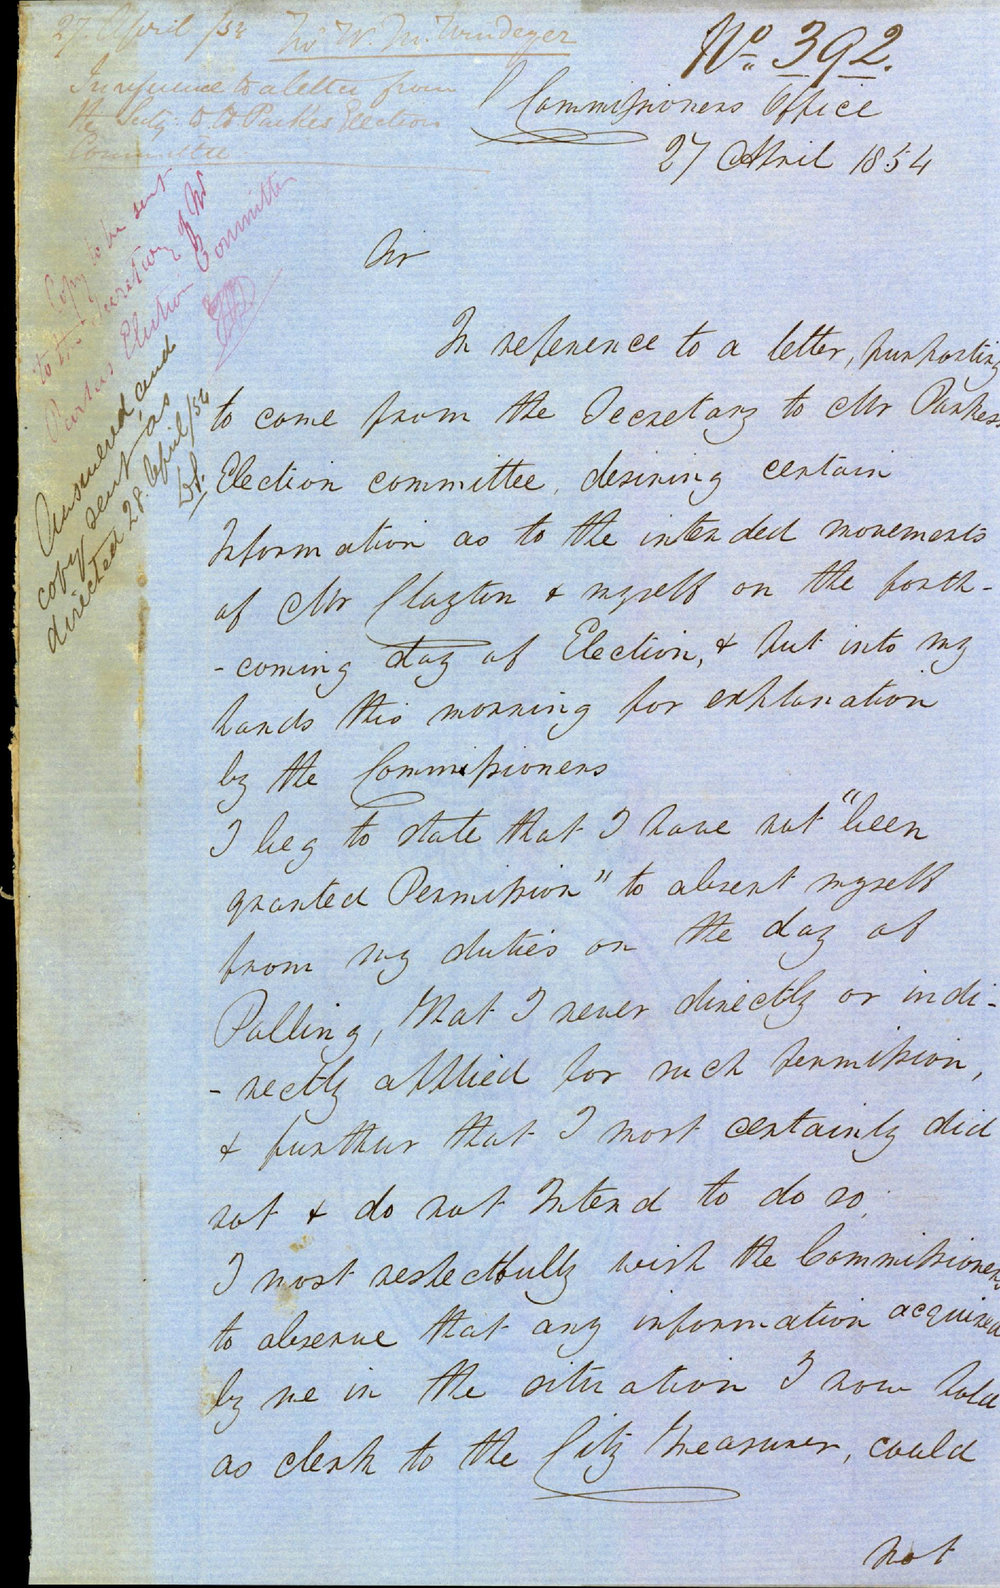 27 April /54 Mr W. M. Windeyer
In reference to a letter from
the Secty to Mr Parkes Election
Committee
No. 392.
Commissioners Office
27 April 1854
Copy to be sent
to the Secretary of Mr
Parkes Election Committee
Answered, and
copy sent as
directed 28. April/54
Sir
In reference to a letter, purporting
to come from the Secretary to Mr Parkes
Election committee, desiring certain
Information as to the intended movements
of Mr Clayton & myself on the forth-
-coming day of Election, & put into my
hands this morning for explanation
by the Commissioners
I beg to state that I have not "been
granted Permission" to absent myself
from my duties on the day of
Polling, that I never directly or indi-
-rectly applied for such permission,
& further that I most certainly did
not & do not Intend to do so.
I most respectfully wish the Commissioners
to observe that any information acquired
by me in the situation I now hold
as clerk to the City Treasurer, could
not